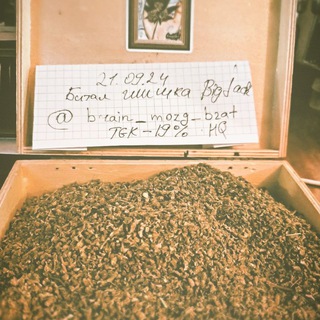 21.09.24
Битал шишка Big Jack
@ brain_mozg_bzat
TGK-19% HQ